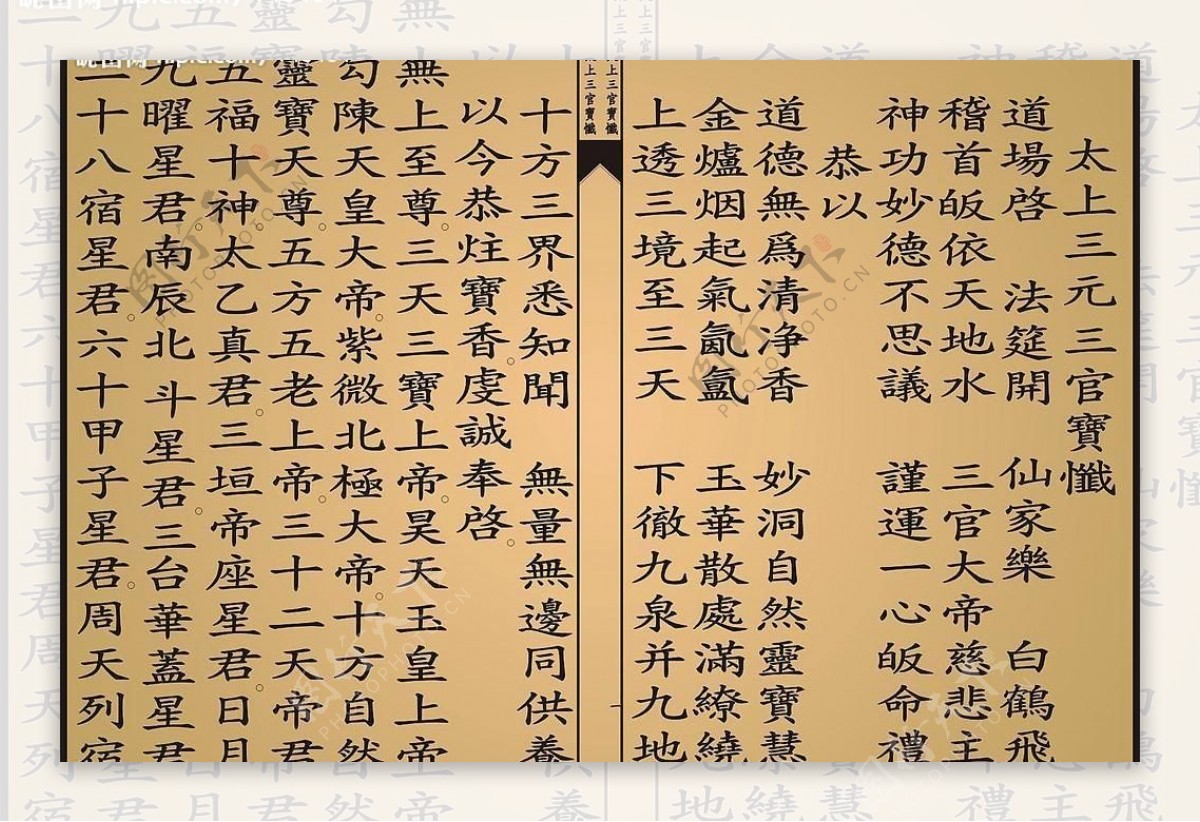 太上三元三官寶懺
道場啓 法筵開 仙家樂 白鶴飛
稽首皈依天地水 三官大帝慈悲主
神功妙德不思議 謹運一心皈命禮
恭以
道德無爲清净香 妙洞自然靈寶慧
金爐烟起氣氤氲 玉華散處滿繚繞
上透三境至三天 下徹九泉并九地
上三官寶懺
上三官寶懺
十方三界悉知聞 無量無邊同供養
以今恭炷寶香虔誠奉啓
無上至尊三天三寶上帝昊天玉皇上帝
勾陳天皇大帝紫微北極大帝十方自然
靈寶天尊五方五老上帝三十二天帝君
五福十神太乙真君三垣帝座星君日月
九曜星君南辰北斗星君三台華蓋星君
二十八宿星君六十甲子星君周天列宿